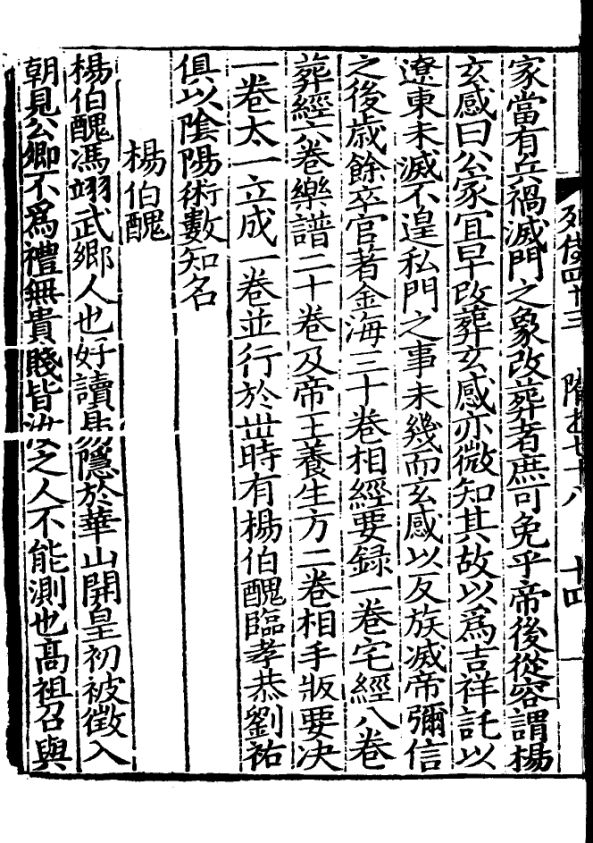 列傳四十三　隋書七十八　十四
家當有兵禍滅門之象改葬者庶可免乎帝後從容謂楊
玄感曰公家宜早改葬玄感亦微知其故以爲吉祥託以
遼東未滅不遑私門之事未幾而玄感以反族滅帝彌信
之後歳餘卒官著金海三十卷相經要録一卷宅經八卷
葬經六卷樂譜二十卷及帝王養生方二卷相手版要决
一卷太一立成一卷並行於丗時有楊伯醜臨孝恭劉祐
俱以隂陽術數知名
楊伯醜
楊伯醜馮翊武鄉人也好讀易隱於華山開皇初被徵入
朝見公卿不爲禮無貴賤皆汝之人不能測也髙祖召與